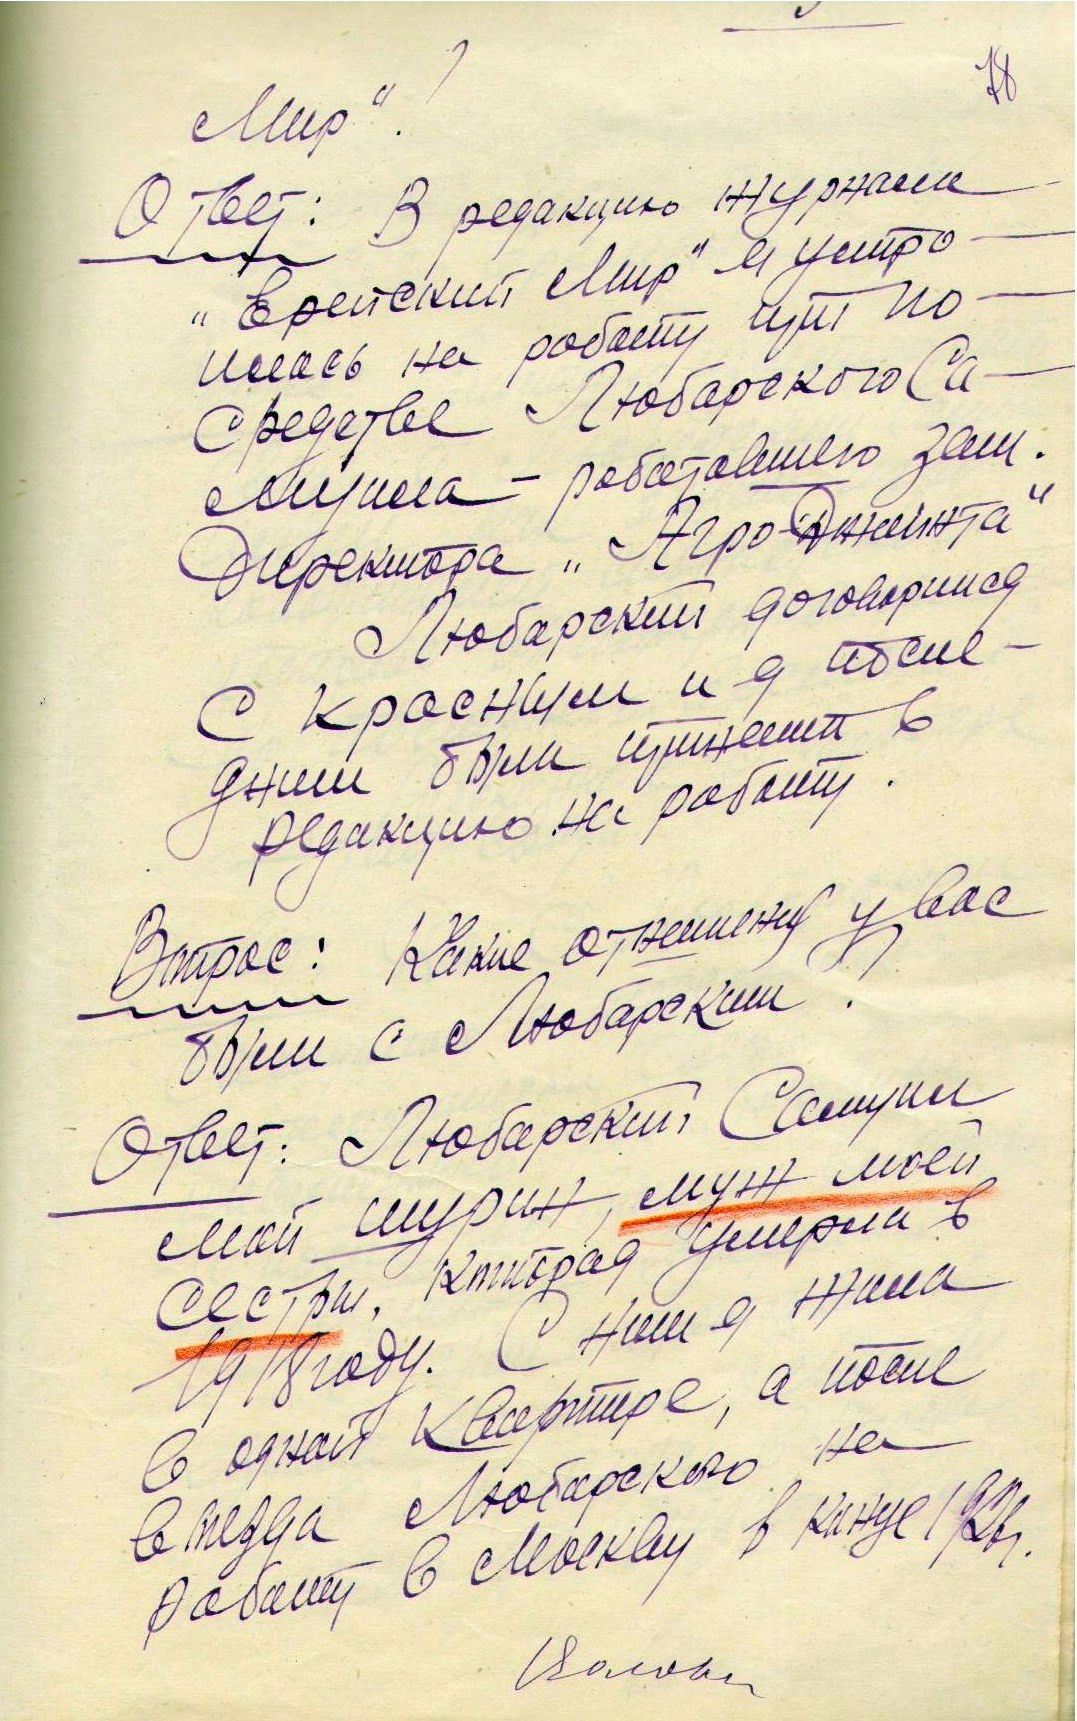 78
Мир"?
Ответ: В редакцию журнала
"Еврейский Мир" я устро-
илась на работу при по-
средстве Любарского Са-
муила - работавшего зам.
Директора "Агро-Джойнта"
Любарский договорился
с Красным и я после-
дним были приняты в
редакцию на работу.
Вопрос: Какие отношения у вас
были с Любарским?
Ответ: Любарский Самуил
мой шурин, муж моей
сестры, которая умерла в
1918 году. С ним я жила
в одной квартире, а после
въезда Любарского на
работу в Москву в конце